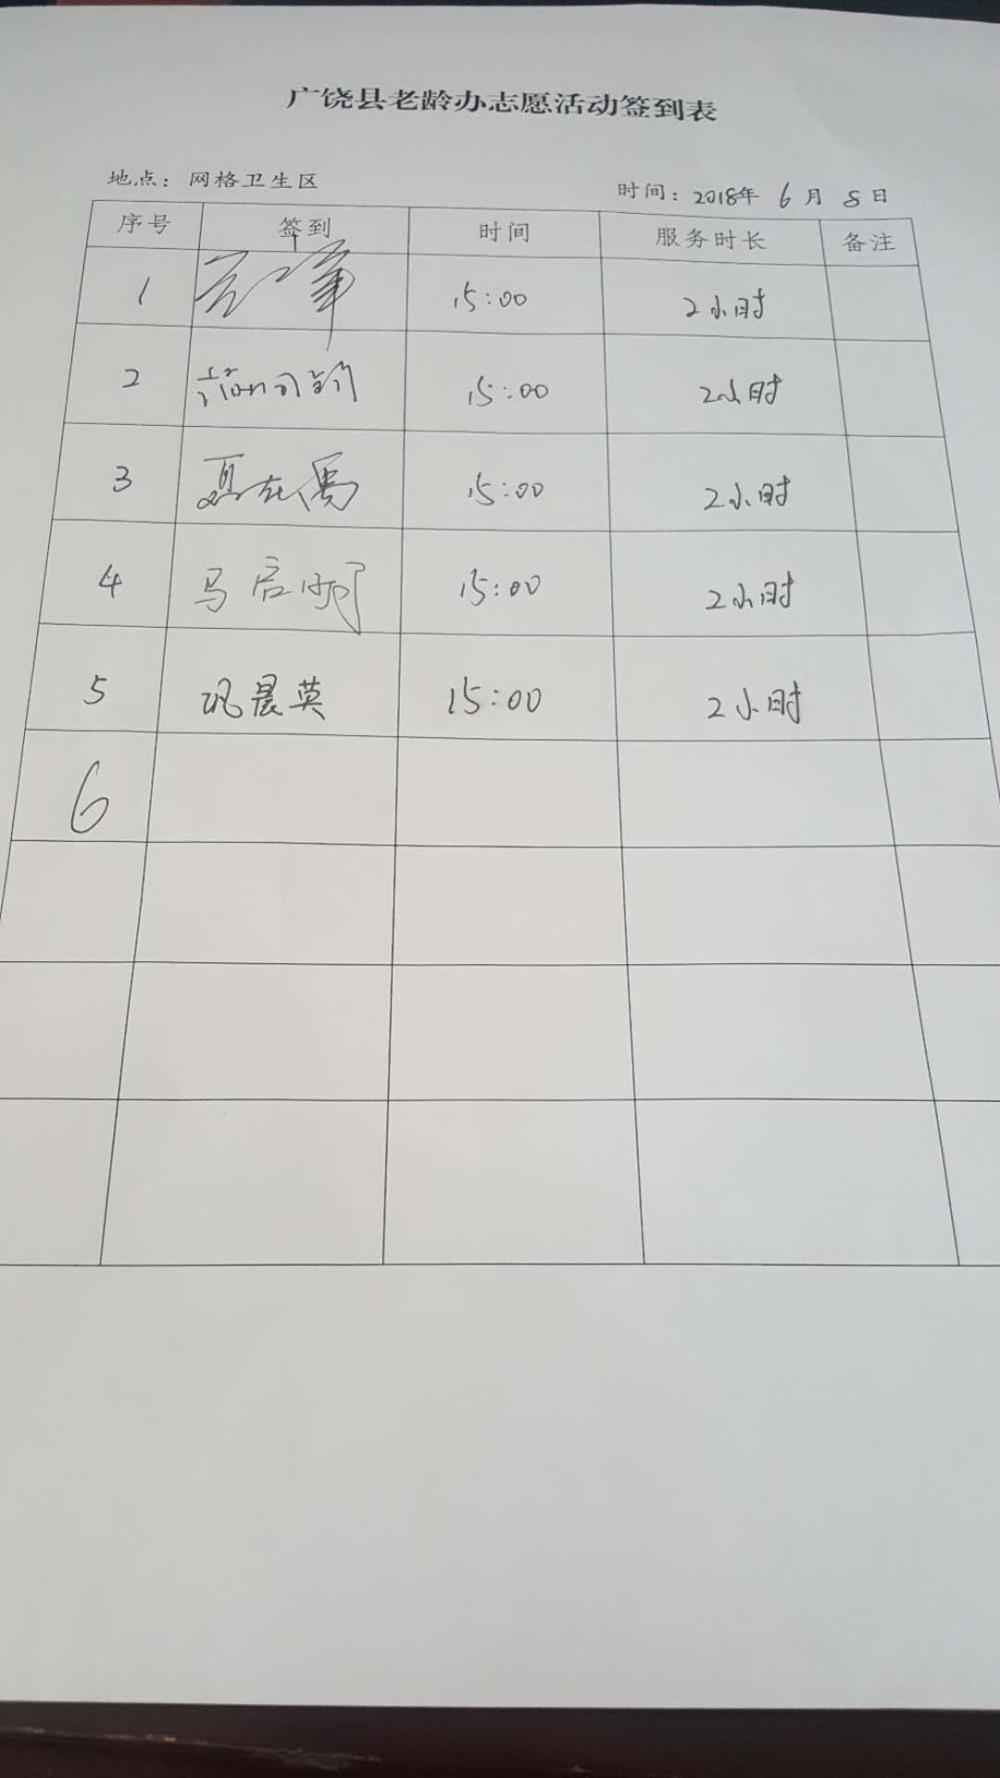 广饶县老龄办志愿活动签到表
地点：网格卫生区 时间：2018年 6 月 8 日
序号 签到 时间 服务时长 备注
1 15:00 2小时
2 15:00 2小时
3 15:00 2小时
4 马启 15:00 2小时
5 巩晨英 15:00 2小时
6